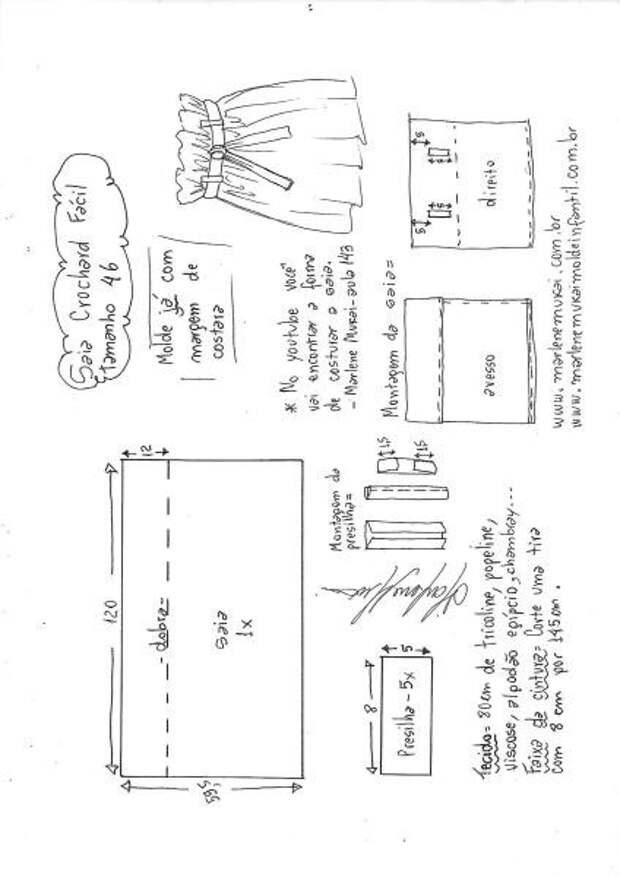 Saia Crochard Fácil
tamanho 46
Molde já com
margem de
costura
* No youtube você
vai encontrar a forma
de costurar a saia.
- Marlene Mukai - aula 143
120
12
- dobra -
saia
1x
Montagem da
presilha=
1,5
1,5
Montagem da saia=
avesso
direito
5
5
5
5
8
5
Presilha - 5x
Tecido= 80cm de tricoline, popeline,
viscose, algodão egípcio, chambray...
Faixa da cintura= Corte uma tira
com 8 cm por 145cm.
www.marlenemukai.com.br
www.marlenemukaimoldeinfantil.com.br